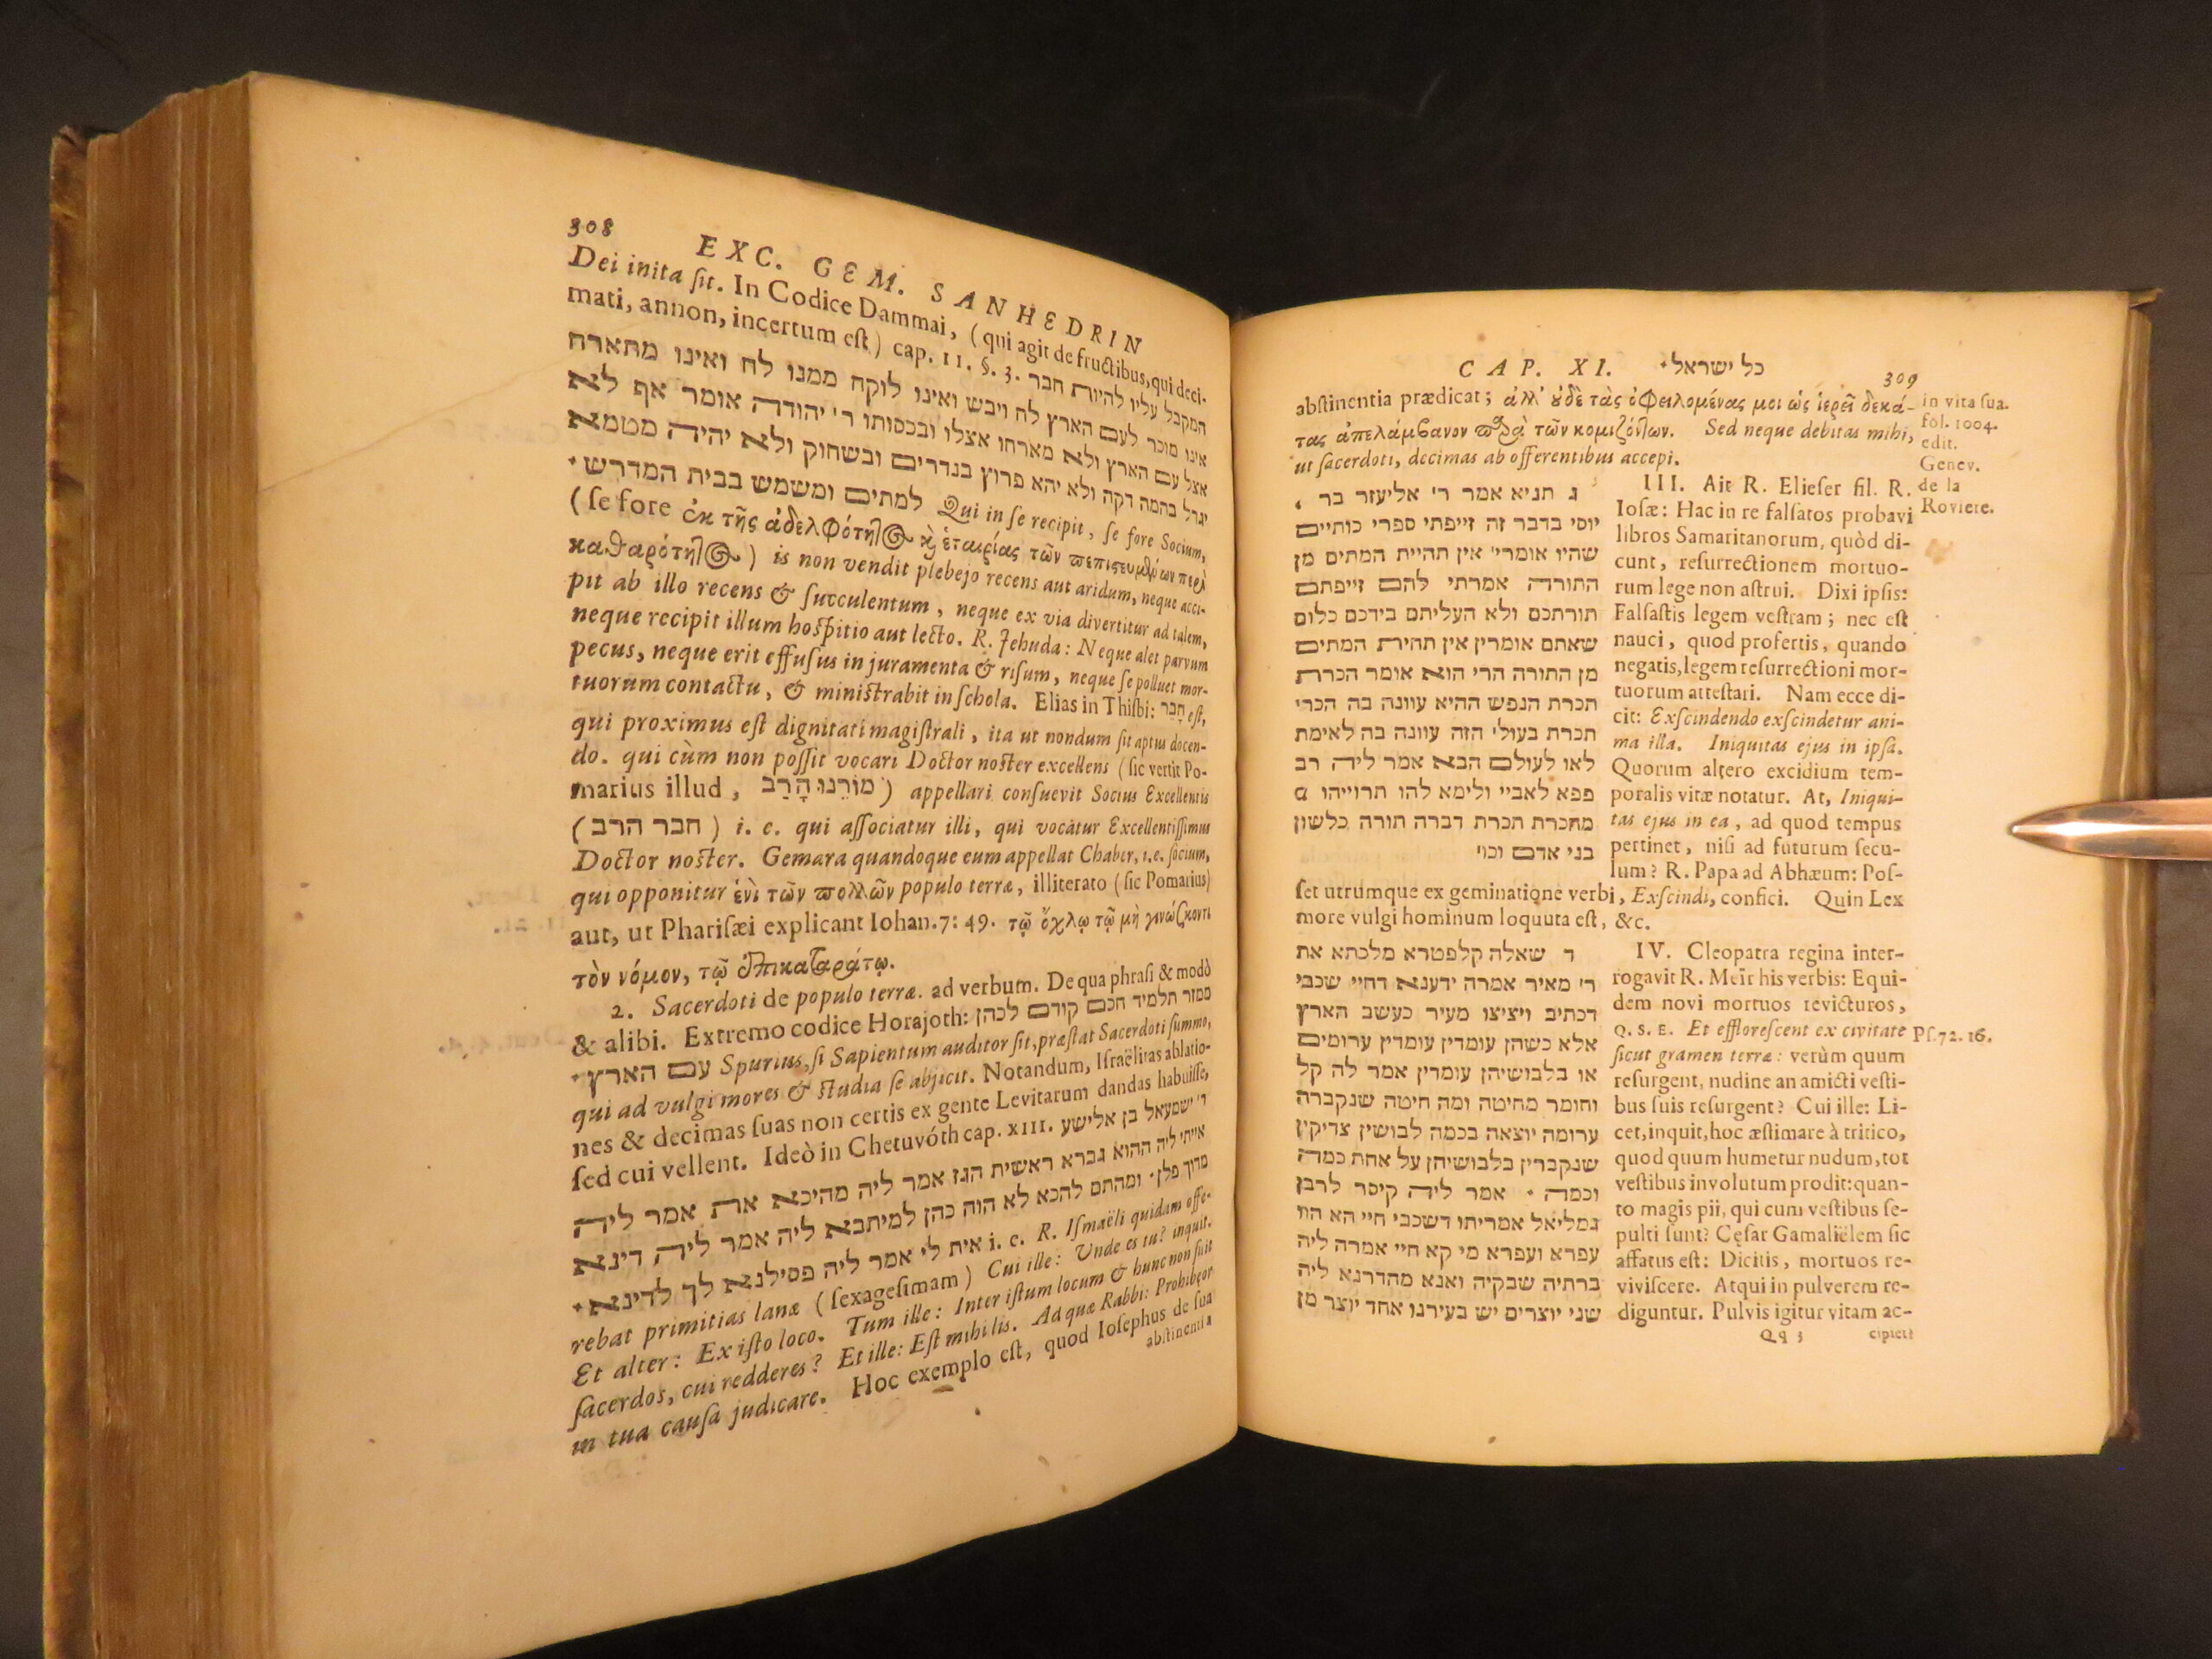 308 EXC. GEM. SANHEDRIN
Dei inita ſit. In Codice Dammai, (qui agit de fructibus, qui deci-
mati, annon, incertum eſt) cap. 11. §. 3. המקבל עליו להיות חבר
אינו מוכר לעם הארץ לח ויבש ואינו לוקח ממנו לח ואינו מתארח
אצל עם הארץ ולא מארחו אצלו ובכסותו ר' יהודה אומר אף לא
יגדל בהמה דקה ולא יהא פרוץ בנדרים ובשחוק ולא יהיה מטמא
למתים ומשמש בבית המדרש· Qui in ſe recipit, ſe fore Socium,
(ſe fore ἐκ τῆς ἀδελφότητος καὶ ἑταιρίας τῶν πεπιςευμένων περὶ
καθαρότητος) is non vendit plebejo recens aut aridum, neque acci-
pit ab illo recens & ſucculentum, neque ex via divertitur ad talem,
neque recipit illum hoſpitio aut lecto. R. Jehuda: Neque alet parvum
pecus, neque erit effuſus in juramenta & riſum, neque ſe polluet mor-
tuorum contactu, & miniſtrabit in ſchola. Elias in Thiſbi: חָבֵר eſt,
qui proximus eſt dignitati magiſtrali, ita ut nondum ſit aptus docen-
do. qui cùm non poſſit vocari Doctor noſter excellens (ſic vertit Po-
marius illud, מוֹרֵנוּ הָרַב) appellari conſuevit Socius Excellentis
(חבר הרב) i. e. qui aſſociatur illi, qui vocatur Excellentiſſimus
Doctor noſter. Gemara quandoque eum appellat Chaber, i.e. ſocium,
qui opponitur ἑνὶ τῶν πολλῶν populo terræ, illiterato (ſic Pomarius)
aut, ut Phariſæi explicant Iohan. 7: 49. τῷ ὄχλῳ τῷ μὴ γινώσκοντι
τὸν νόμον, τῷ ἐπικαταράτῳ.
2. Sacerdoti de populo terræ. ad verbum. De qua phraſi & modò
& alibi. Extremo codice Horajoth: ממזר תלמיד חכם קודם לכהן
עם הארץ· Spurius, ſi Sapientum auditor ſit, præſtat Sacerdoti ſummo,
qui ad vulgi mores & ſtudia ſe abjicit. Notandum, Iſraëlitas ablatio-
nes & decimas ſuas non certis ex gente Levitarum dandas habuiſſe,
ſed cui vellent. Ideò in Chetuvóth cap. XIII. ר' ישמעאל בן אלישע
אייתי ליה ההוא גברא ראשית הגז אמר ליה מהיכא את אמר ליה
מדוך פלן· ומהתם להכא לא הוה כהן למיתבא ליה אמר ליה דינא
אית לי אמר ליה פסילנא לך לדינא· i. e. R. Iſmaëli quidam offe-
rebat primitias lanæ (ſexageſimam) Cui ille: Unde es tu? inquit.
Et alter: Ex iſto loco. Tum ille: Inter iſtum locum & hunc non fuit
ſacerdos, cui redderes? Et ille: Eſt mihi lis. Ad quæ Rabbi: Prohibeor
in tua cauſa judicare. Hoc exemplo eſt, quod Ioſephus de ſua
abſtinentia
CAP. XI. כל ישראל· 309
abſtinentia prædicat; ἀλλ' οὐδὲ τὰς ὀφειλομένας μοι ὡς ἱερεῖ δεκά-
τας ἀπελάμβανον παρὰ τῶν κομιζόντων. Sed neque debitas mihi,
ut ſacerdoti, decimas ab offerentibus accepi.
in vita ſua.
fol. 1004.
edit.
Genev.
de la
Roviere.
ג תניא אמר ר' אליעזר בר
יוסי בדבר זה זייפתי ספרי כותיים
שהיו אומרי' אין תהיית המתים מן
התורה אמרתי להם זייפתם
תורתכם ולא העליתם בידכם כלום
שאתם אומרין אין תהיית המתים
מן התורה הרי הוא אומר הכרת
תכרת הנפש ההיא עוונה בה הכרי
תכרת בעול' הזה עוונה בה לאימת
לאו לעולם הבא אמר ליה רב
פפא לאביי ולימא להו תרוייהו a
מהכרת תכרת דברה תורה כלשון
בני אדם וכו'
III. Ait R. Elieſer fil. R.
Ioſæ: Hac in re falſatos probavi
libros Samaritanorum, quòd di-
cunt, reſurrectionem mortuo-
rum lege non aſtrui. Dixi ipſis:
Falſaſtis legem veſtram; nec eſt
nauci, quod profertis, quando
negatis, legem reſurrectioni mor-
tuorum atteſtari. Nam ecce di-
cit: Exſcindendo exſcindetur ani-
ma illa. Iniquitas ejus in ipſa.
Quorum altero excidium tem-
poralis vitæ notatur. At, Iniqui-
tas ejus in ea, ad quod tempus
pertinet, niſi ad futurum ſecu-
lum? R. Papa ad Abhæum: Poſ-
ſet utrumque ex geminatione verbi, Exſcindi, confici. Quin Lex
more vulgi hominum loquuta eſt, &c.
ד שאלה קלפטרא מלכתא את
ר' מאיר אמרה ידענא דחיי שכבי
דכתיב ויציצו מעיר כעשב הארץ
אלא כשהן עומדין עומדין ערומים
או בלבושיהן עומדין אמר לה קל
וחומר מחיטה ומה חיטה שנקברה
ערומה יוצאה בכמה לבושין צדיקין
שנקברין בלבושיהן על אחת כמה
וכמה · אמר ליה קיסר לרבן
גמליאל אמריתו דשכבי חיי הא הוו
עפרא ועפרא מי קא חיי אמרה ליה
ברתיה שבקיה ואנא מהדרנא ליה
שני יוצרים יש בעירנו אחד יוצר מן
IV. Cleopatra regina inter-
rogavit R. Meïr his verbis: Equi-
dem novi mortuos revicturos,
Q. S. E. Et effloreſcent ex civitate
ſicut gramen terræ: verùm quum
reſurgent, nudine an amicti veſti-
bus ſuis reſurgent? Cui ille: Li-
cet, inquit, hoc æſtimare à tritico,
quod quum humetur nudum, tot
veſtibus involutum prodit: quan-
to magis pii, qui cum veſtibus ſe-
pulti ſunt? Cęſar Gamaliëlem ſic
affatus eſt: Dicitis, mortuos re-
viviſcere. Atqui in pulverem re-
diguntur. Pulvis igitur vitam ac-
Pſ. 72. 16.
Qq 3 cipiet?